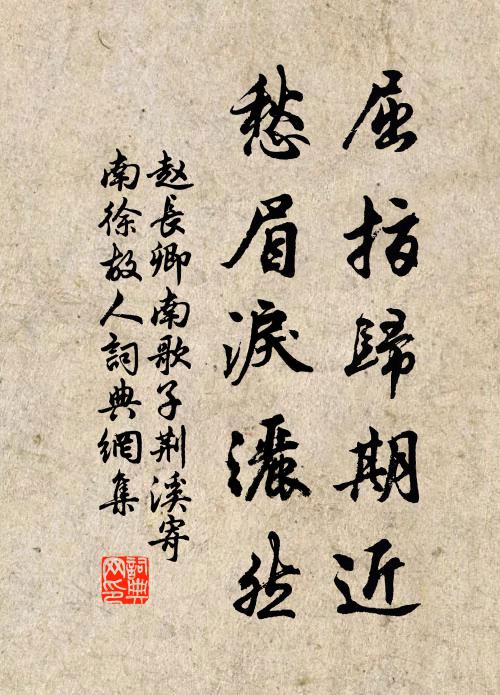 屈指歸期近
愁眉淚灑然
赵長卿南歌子荆溪寄
南徐故人詞典網集
詞典
网印